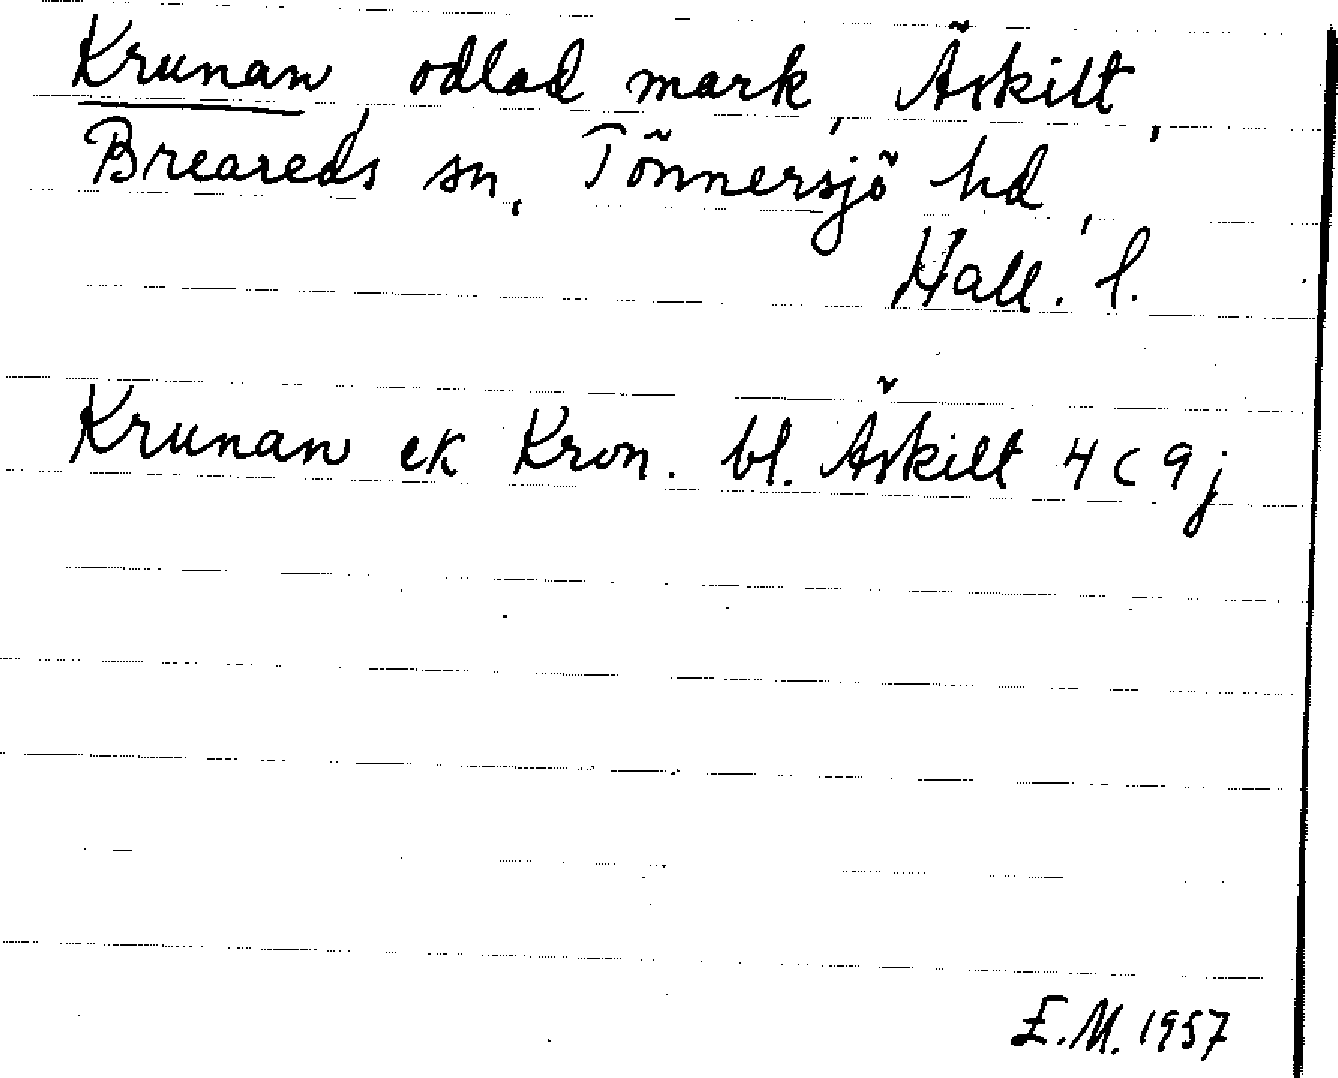 Krunan, odlad mark, Äskilt,
Breareds sn, Tönnersjö hd,
Hall. l.
Krunan ek Kron. bl. Äskilt 4 C 9 j
E.M. 1957